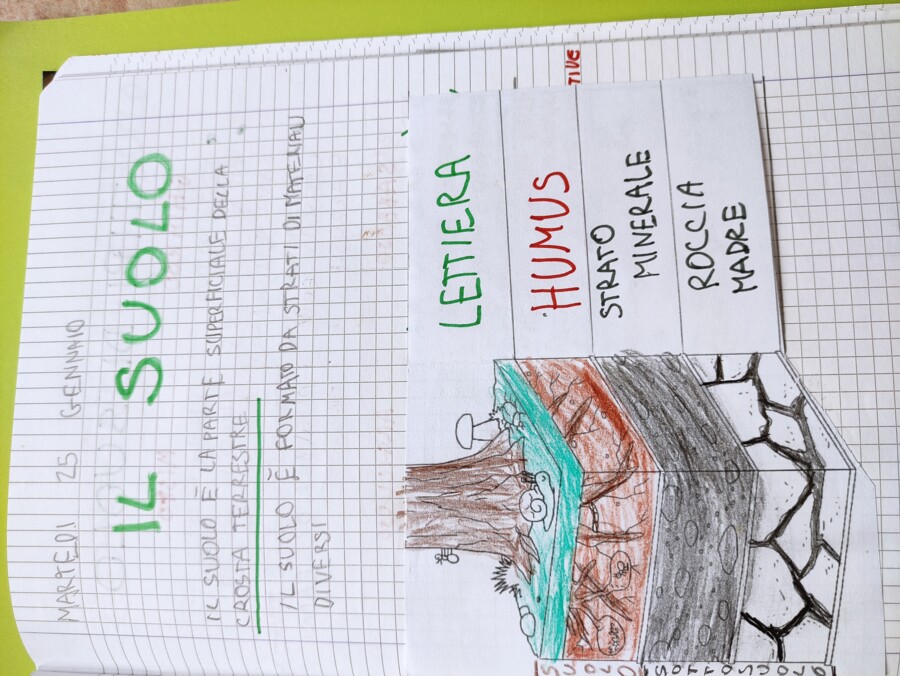 MARTEDI 25 GENNAIO
IL SUOLO
IL SUOLO È LA PARTE SUPERFICIALE DELLA
CROSTA TERRESTRE
IL SUOLO È FORMATO DA STRATI DI MATERIALI
DIVERSI
LETTIERA
HUMUS
STRATO
MINERALE
ROCCIA
MADRE
SUOLO
SOTTOSUOLO
TIVE